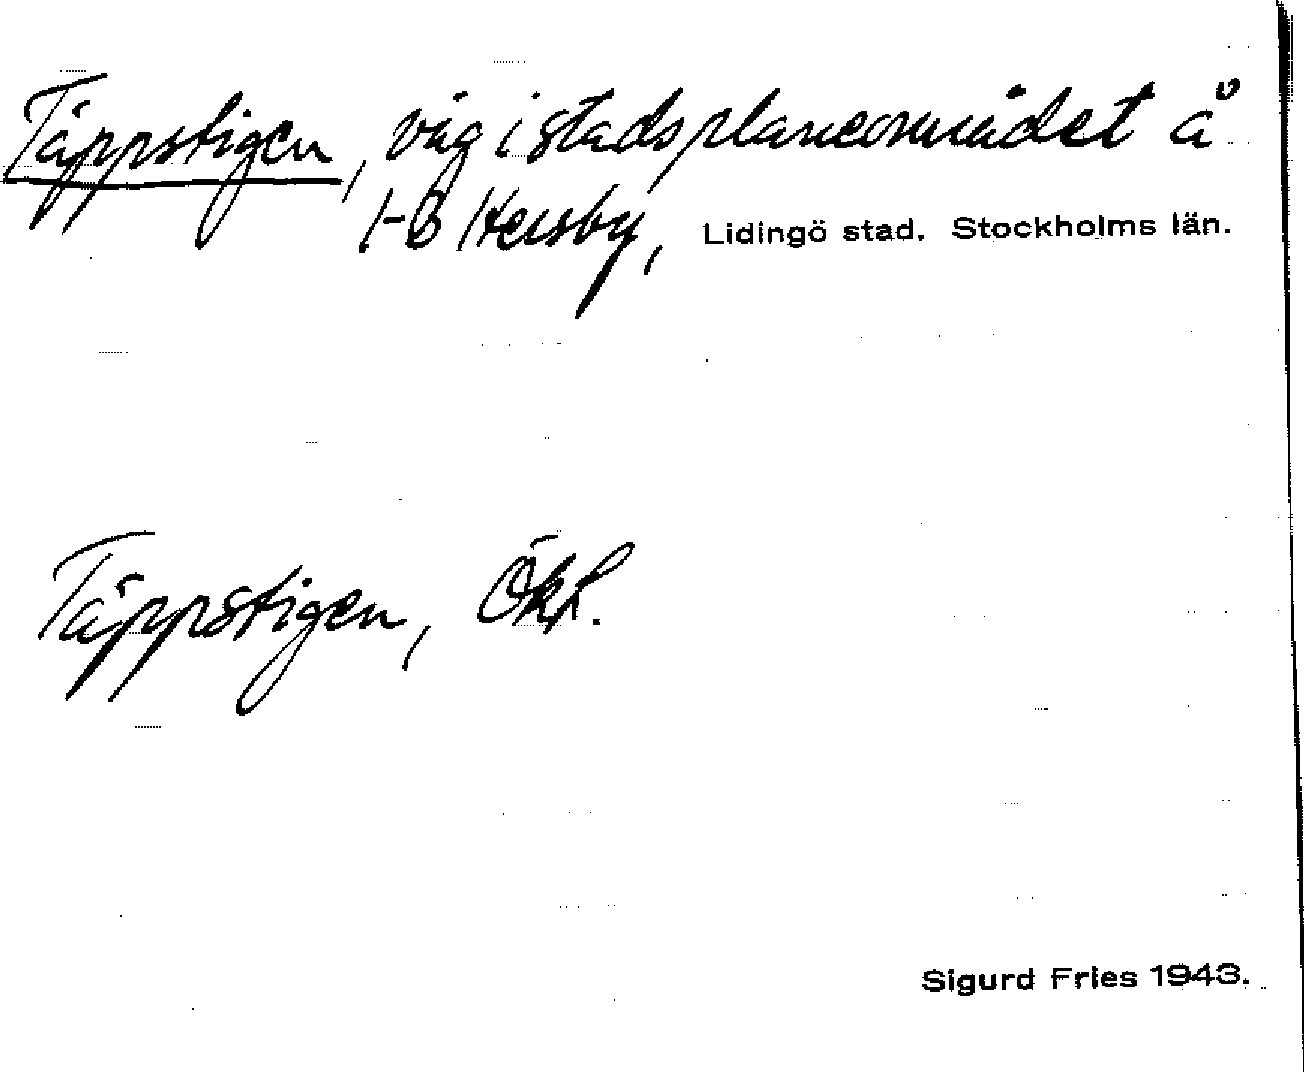 Täppstigen, väg i stadsplaneområdet å
1-3 Hersby, Lidingö stad. Stockholms län.
Täppstigen, Ökf.
Sigurd Fries 1943.